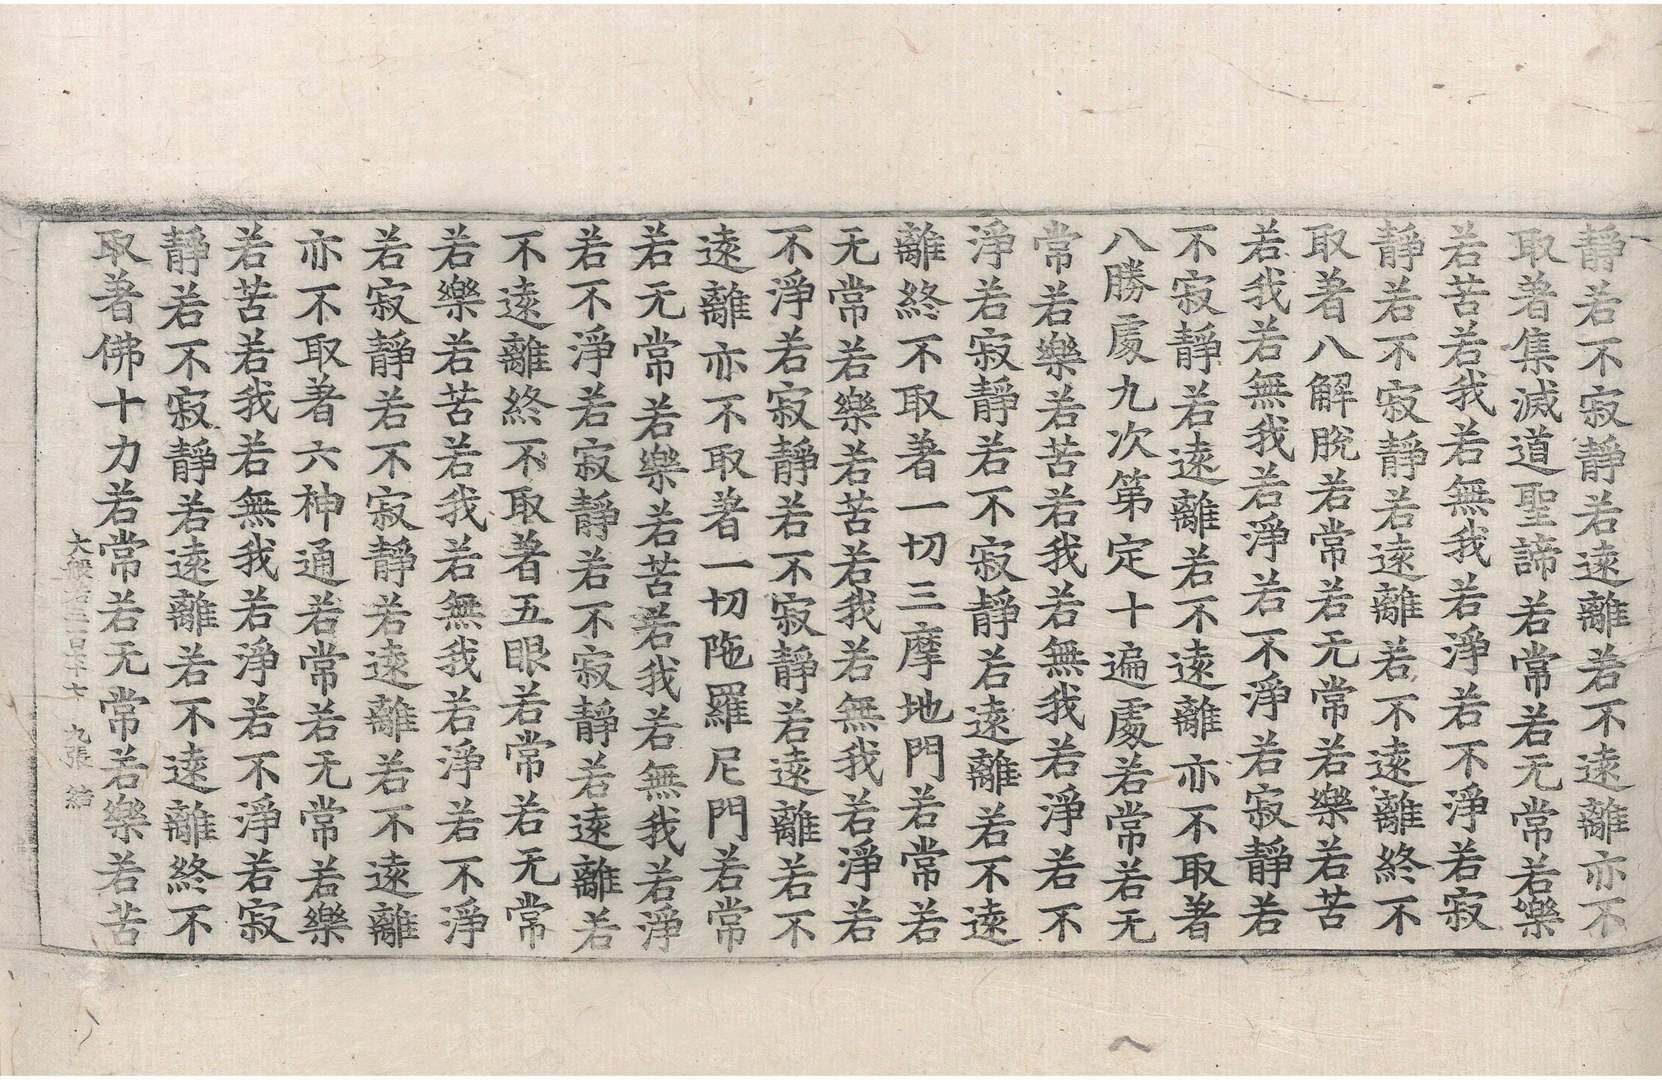 靜若不寂靜若遠離若不遠離亦不
取著集滅道聖諦若常若无常若樂
若苦若我若無我若淨若不淨若寂
靜若不寂靜若遠離若不遠離終不
取著八解脫若常若无常若樂若苦
若我若無我若淨若不淨若寂靜若
不寂靜若遠離若不遠離亦不取著
八勝處九次第定十遍處若常若无
常若樂若苦若我若無我若淨若不
淨若寂靜若不寂靜若遠離若不遠
離終不取著一切三摩地門若常若
无常若樂若苦若我若無我若淨若
不淨若寂靜若不寂靜若遠離若不
遠離亦不取著一切陁羅尼門若常
若无常若樂若苦若我若無我若淨
若不淨若寂靜若不寂靜若遠離若
不遠離終不取著五眼若常若无常
若樂若苦若我若無我若淨若不淨
若寂靜若不寂靜若遠離若不遠離
亦不取著六神通若常若无常若樂
若苦若我若無我若淨若不淨若寂
靜若不寂靜若遠離若不遠離終不
取著佛十力若常若无常若樂若苦
大般若三百七 九張